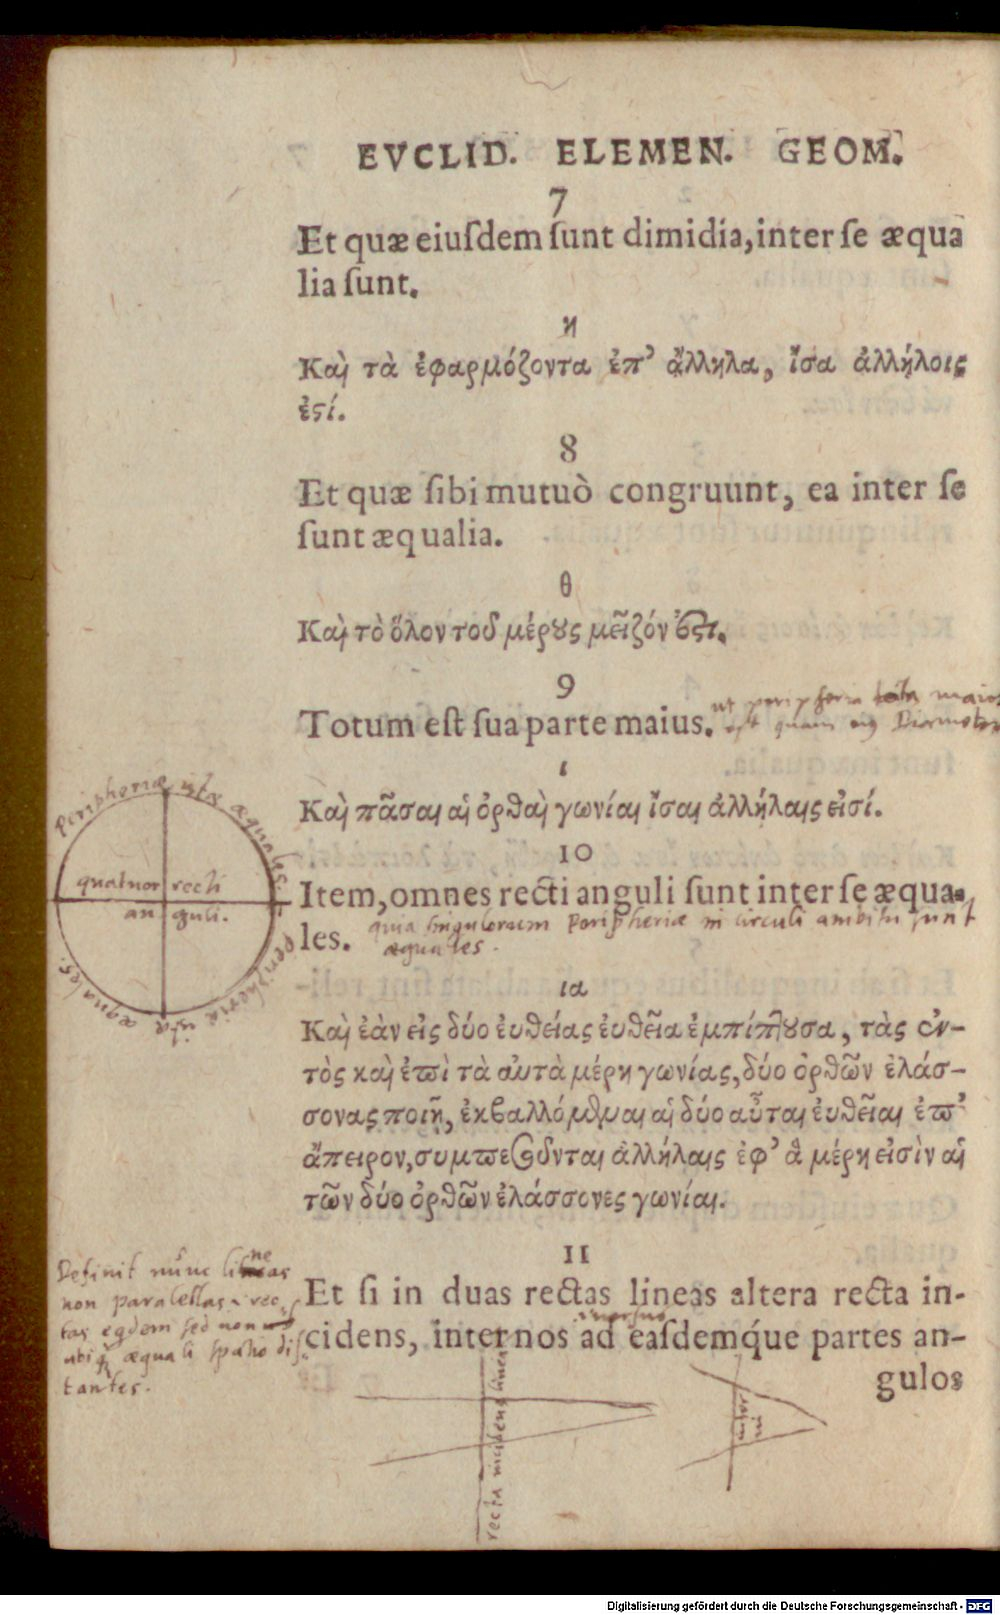 EVCLID. ELEMEN. GEOM.
7
Et quæ eiuſdem ſunt dimidia, inter ſe æqua
lia ſunt.
η
Καὶ τὰ ἐφαρμόζοντα ἐπ’ ἄλληλα, ἴσα ἀλλήλοις
ἐϛί.
8
Et quæ ſibi mutuò congruunt, ea inter ſe
ſunt æqualia.
θ
Καὶ τὸ ὅλον τοῦ μέρους μεῖζόν ἐϛι.
9
Totum eſt ſua parte maius.
ut peripheria tota maior
est quam eius Diameter
ι
Καὶ πᾶσαι αἱ ὀρθαὶ γωνίαι ἴσαι ἀλλήλαις εἰσί.
10
Item, omnes recti anguli ſunt inter ſe æqua-
les.
quia singulorum Peripheriæ in circuli ambitu sunt
æquales.
Peripheriæ istæ æquales.
quatuor recti
an guli.
peripheriæ istæ æquales.
ια
Καὶ ἐὰν εἰς δύο ἐυθείας ἐυθεῖα ἐμπίπτουσα, τὰς ἐν-
τὸς καὶ ἐπὶ τὰ αὐτὰ μέρη γωνίας, δύο ὀρθῶν ἐλάσ-
σονας ποιῇ, ἐκβαλλόμεναι αἱ δύο αὗται ἐυθεῖαι ἐπ’
ἄπειρον, συμπεσοῦνται ἀλλήλαις ἐφ’ ἃ μέρη εἰσὶν αἱ
τῶν δύο ὀρθῶν ἐλάσσονες γωνίαι.
11
Et ſi in duas rectas lineas altera recta in-
cidens, internos ad eaſdemq́ue partes an-
gulos
Definit nunc lineas
non paralellas, rec
tas eqdem sed non
ubiq æquali spatio dis
tantes.
recta incidens linea
Digitalisierung gefördert durch die Deutsche Forschungsgemeinschaft - DFG